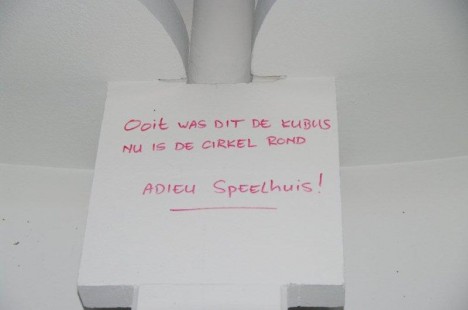 Ooit WAS DIT DE KUBUS
NU IS DE CIRKEL ROND
ADIEU SPEELHUIS!